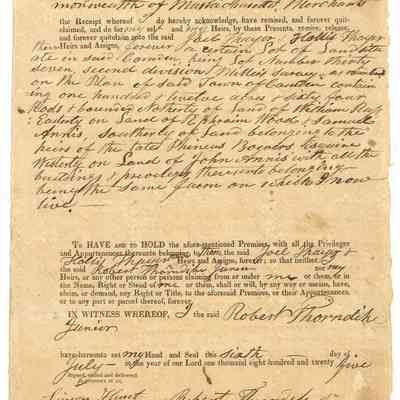 monwealth of Massachusetts, Merchants
the Receipt whereof I do hereby acknowledge, have remised, released, and forever quit-
claimed, and do for my self and my Heirs, by these Presents, remise, release,
and forever quitclaim unto the said Joel Thayer & Hollis Thayer
their Heirs and Assigns, forever, a certain Lot of Land situ
ate in said Camden, being Lot Number thirty
seven, second division, Millers survey, as
on the Plan of said Town of Camden contain
ing one hundred & twelve acres & sixty four
Rods & bounded Northerly on Land of William
Easterly on Land of Ephraim Wood & Samuel
Annis, southerly of Land belonging to the
heirs of the late Phineus Bowles Esquire
Westerly on Land of John Annis with all the
buildings & privileges thereunto belonging
being the same farm on which I now
live.
To HAVE and to HOLD the afore-mentioned Premises, with all the Privileges
and Appurtenances thereunto belonging, to them the said Joel Thayer &
Hollis Thayer their Heirs and Assigns, forever; so that neither I
the said Robert Thorndike Junior nor my
Heirs, or any other person or persons claiming from or under me or them, or in
the Name, Right or Stead of me or them, shall or will, by any way or means, have,
claim, or demand, any Right or Title, to the aforesaid Premises, or their Appurtenances,
or to any part or parcel thereof, forever.
IN WITNESS WHEREOF, I the said Robert Thorndike
Junior
have hereunto set my Hand and Seal this sixth day of
July in the year of our Lord one thousand eight hundred and twenty five
Signed, sealed and delivered
in presence of us,
Simon Hunt Robert Thorndike Jr